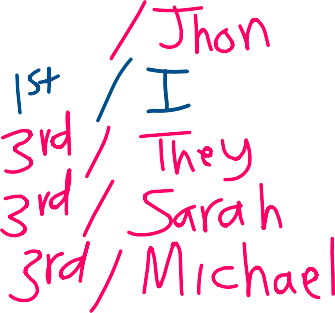 / Jhon
1st / I
3rd / They
3rd / Sarah
3rd / Michael